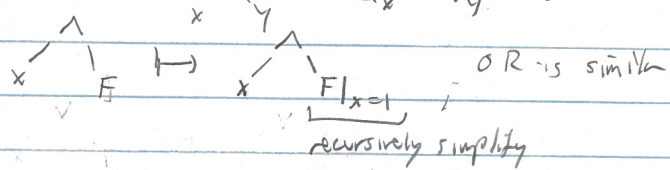 x y
∧ ∧
x F ↦ x F|x=1 ; OR is similar
recursively simplify